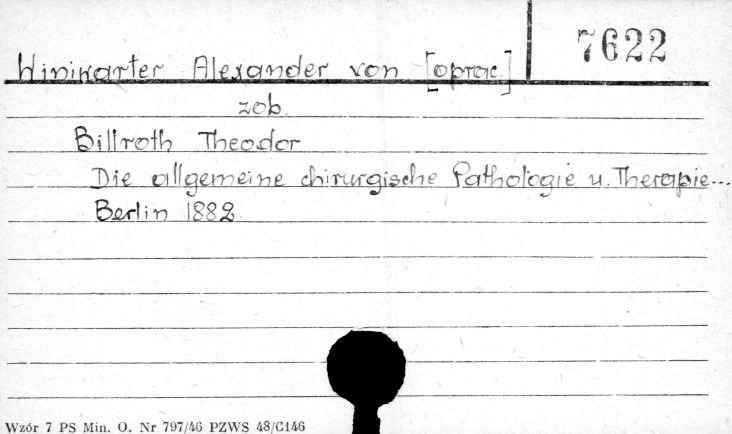 Winiwarter Alexander von [oprac.]
7622
zob.
Billroth Theodor
Die allgemeine chirurgische Pathologie u. Therapie...
Berlin 1882
Wzór 7 PS Min. O. Nr 797/46 PZWS 48/C146